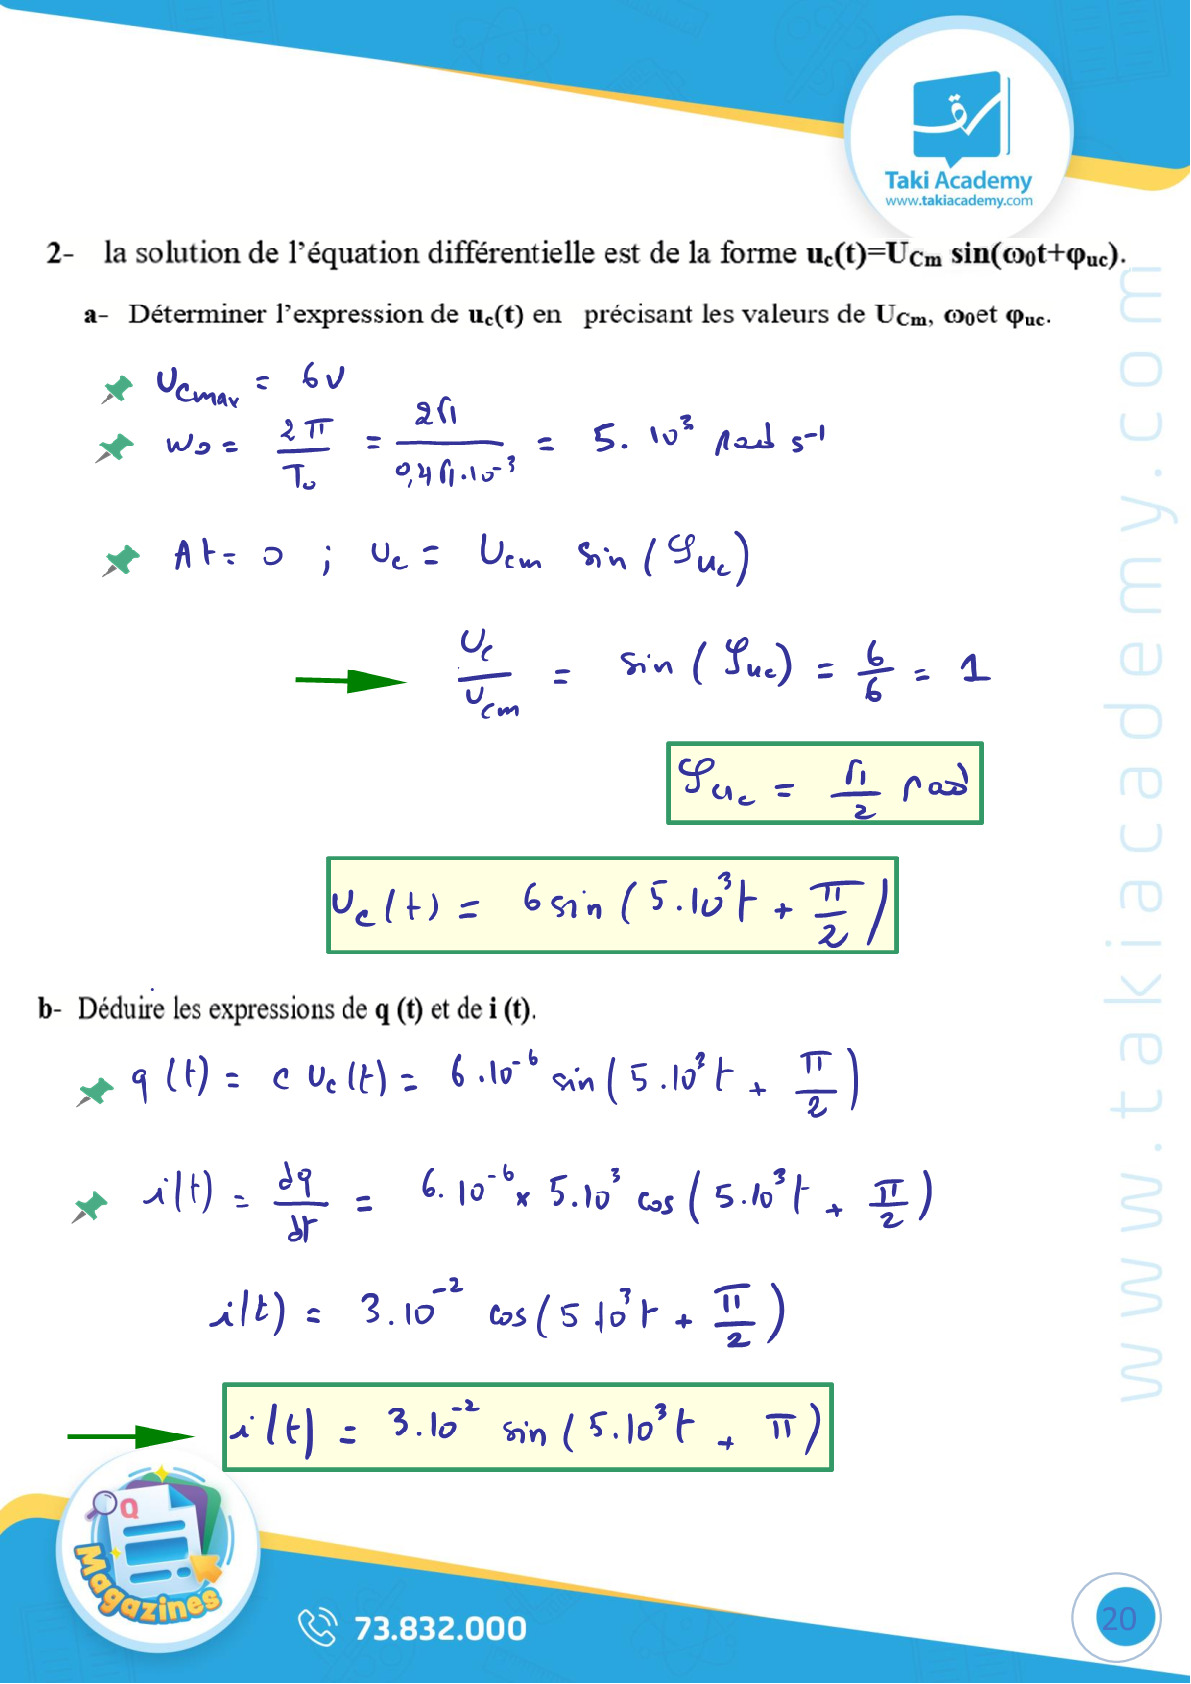 Taki Academy
www.takiacademy.com
2- la solution de l'équation différentielle est de la forme uc(t)=UCm sin(ω0t+φuc).
a- Déterminer l'expression de uc(t) en précisant les valeurs de UCm, ω0et φuc.
UCmax = 6V
ω0 = 2π/T0 = 2π/0,4π.10⁻³ = 5. 10³ rad s⁻¹
At=0 ; uc = Ucm sin(φuc)
uc/Ucm = sin(φuc) = 6/6 = 1
φuc = π/2 rad
uc(t) = 6 sin(5.10³t + π/2)
b- Déduire les expressions de q (t) et de i (t).
q(t) = c uc(t) = 6.10⁻⁶ sin(5.10³t + π/2)
i(t) = dq/dt = 6.10⁻⁶ x 5.10³ cos(5.10³t + π/2)
i(t) = 3.10⁻² cos(5.10³t + π/2)
i(t) = 3.10⁻² sin(5.10³t + π)
www.takiacademy.com
Q
Magazines
73.832.000
20